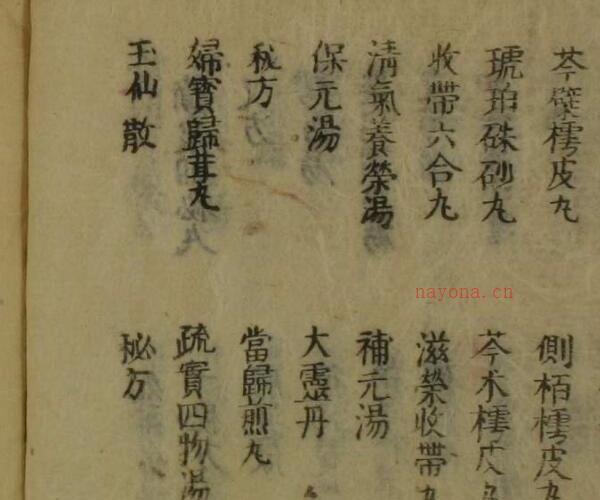 芩檗樗皮丸
側栢樗皮丸
琥珀硃砂丸
芩术樗皮丸
收帶六合丸
滋榮收帶丸
清氣養榮湯
補元湯
保元湯
大靈丹
秘方
當歸煎丸
婦寳歸茸丸
疏實四物湯
玉仙散
秘方
nayona.cn